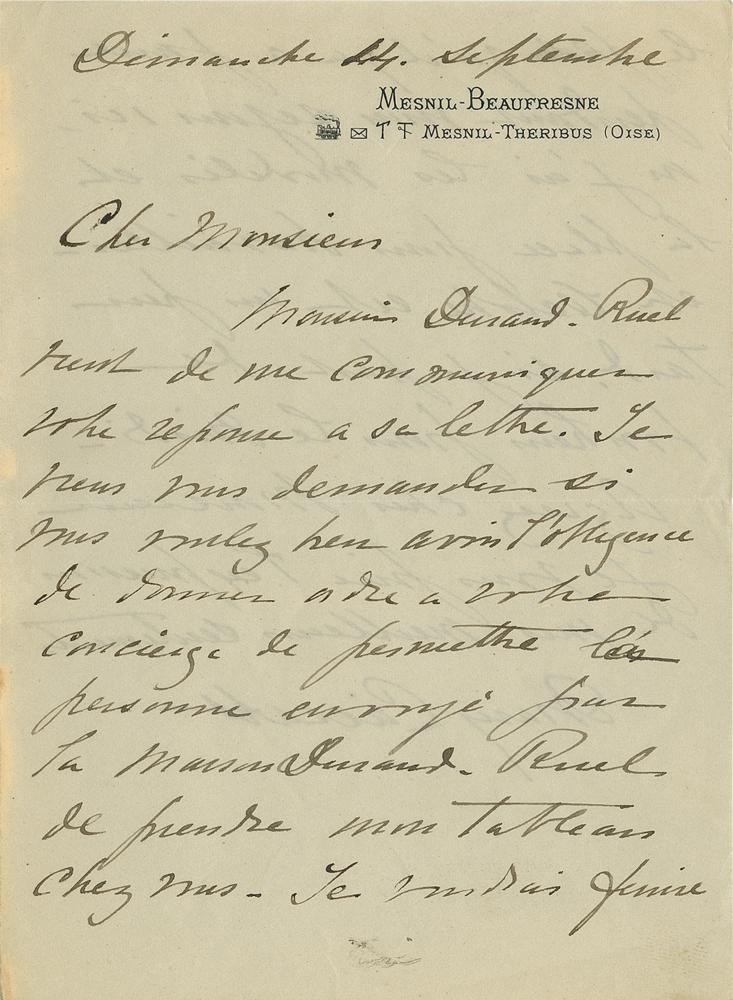 Dimanche 24. Septembre
MESNIL-BEAUFRESNE
T F MESNIL-THERIBUS (OISE)
Cher Monsieur
Monsieur Durand-Ruel
vient de me communiquer
votre reponse a sa lettre. Je
viens vous demander si
vous voulez bien avoir l'obligence
de donner ordre a votre
concierge de permettre
personne envoyé par
la Maison Durand-Ruel
de prendre mon tableau
chez vous - Je voudrais finire